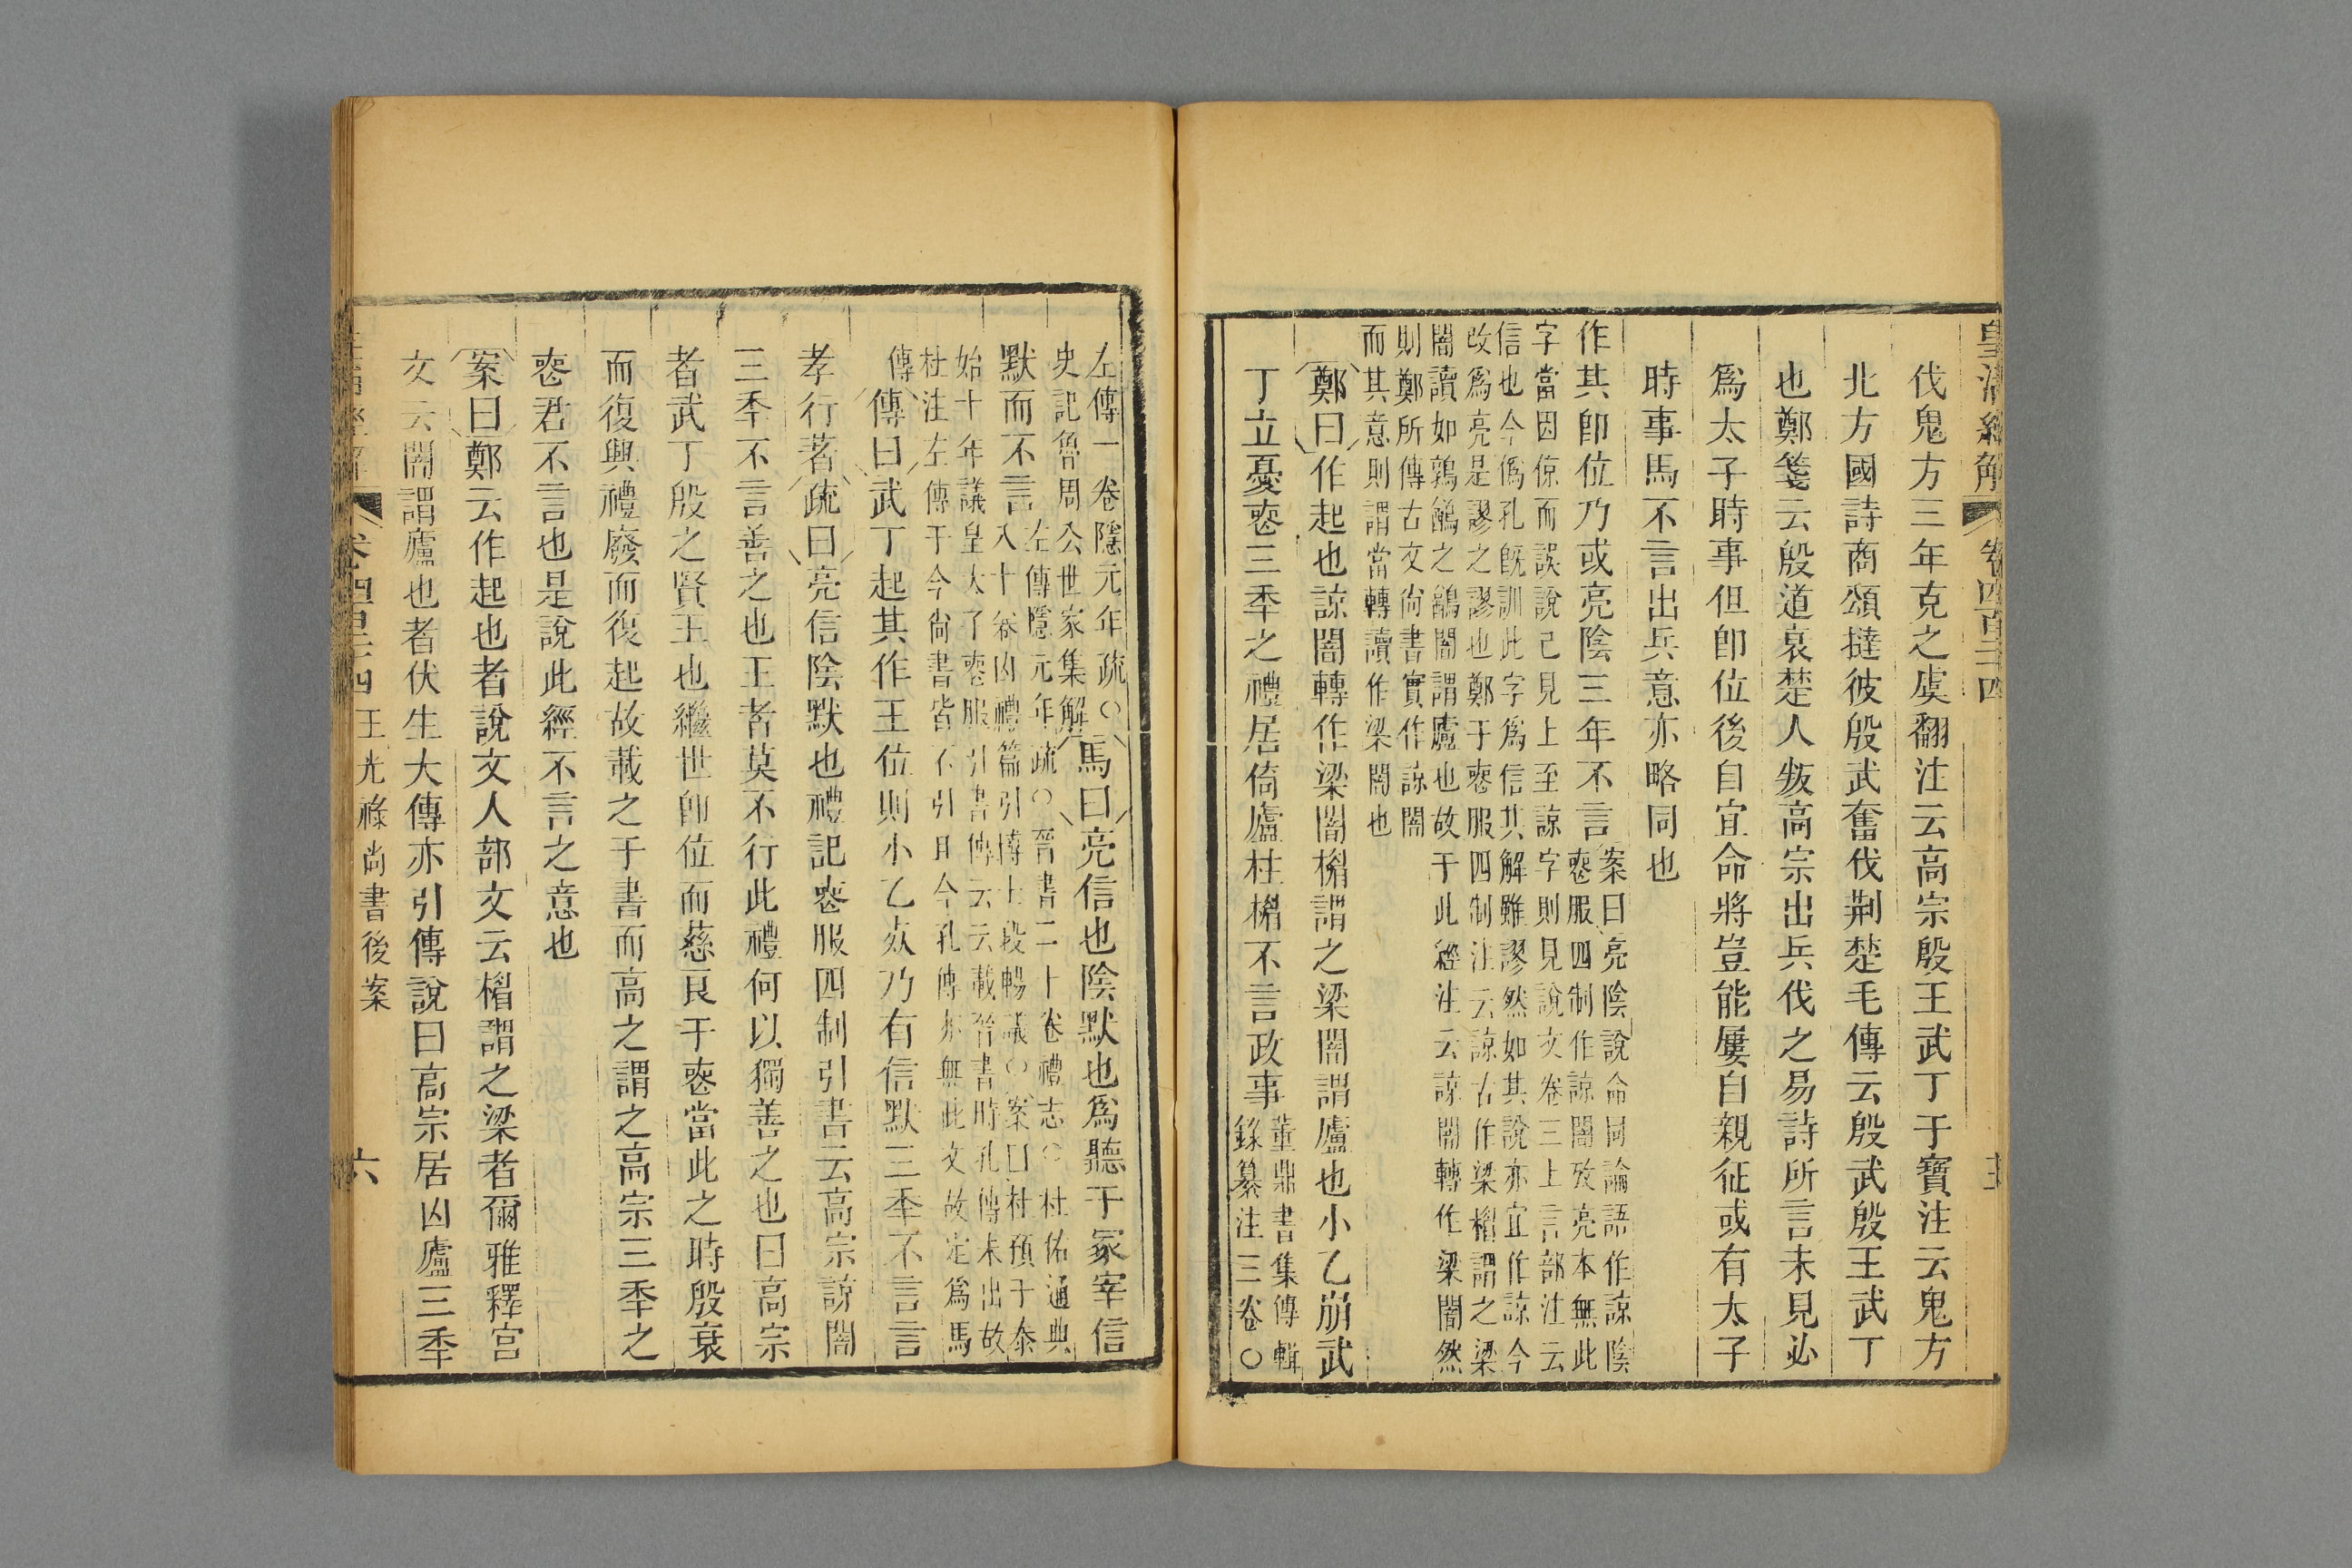 皇清經解 卷四百二十四
伐鬼方三年克之虞翻注云高宗殷王武丁干寶注云鬼方
北方國詩商頌撻彼殷武奮伐荆楚毛傳云殷武殷王武丁
也鄭箋云殷道衰楚人叛高宗出兵伐之易詩所言未見必
爲太子時事但卽位後自宜命將豈能屢自親征或有太子
時事馬不言出兵意亦略同也
作其卽位乃或亮陰三年不言
案曰亮陰說命同論語作諒陰
喪服四制作諒闇攷亮本無此
字當因倞而誤說已見上至諒字則見說文卷三上言部注云
信也今僞孔旣訓此字爲信其解雖謬然如其說亦宜作諒今
改爲亮是謬之謬也鄭于喪服四制注云諒古作梁楣謂之梁
闇讀如鶉鷂之鷂闇謂廬也故于此經注云諒闇轉作梁闇然
則鄭所傳古文尙書實作諒闇
而其意則謂當轉讀作梁闇也
鄭曰作起也諒闇轉作梁闇楣謂之梁闇謂廬也小乙崩武
丁立憂喪三秊之禮居倚廬柱楣不言政事
董鼎書集傳輯
錄纂注三卷○
左傳一卷隱元年疏○
史記魯周公世家集解
馬曰亮信也陰默也爲聽于冢宰信
默而不言
左傳隱元年疏○晉書二十卷禮志○杜佑通典
八十卷凶禮篇引博士段暢議○案曰杜預于泰
始十年議皇太子喪服引書傳云云載晉書時孔傳未出故
杜注左傳于今尙書皆不引且今孔傳亦無此文故定爲馬
傳
傳曰武丁起其作王位則小乙㱙乃有信默三秊不言言
孝行著疏曰亮信陰默也禮記喪服四制引書云高宗諒闇
三秊不言善之也王者莫不行此禮何以獨善之也曰高宗
者武丁殷之賢王也繼世卽位而慈良于喪當此之時殷衰
而復興禮廢而復起故載之于書而高之謂之高宗三秊之
喪君不言也是說此經不言之意也
案曰鄭云作起也者說文人部文云楣謂之梁者爾雅釋宫
文云闇謂廬也者伏生大傳亦引傳說曰高宗居凶廬三秊
卷四百二十四 王光祿尙書後案 六